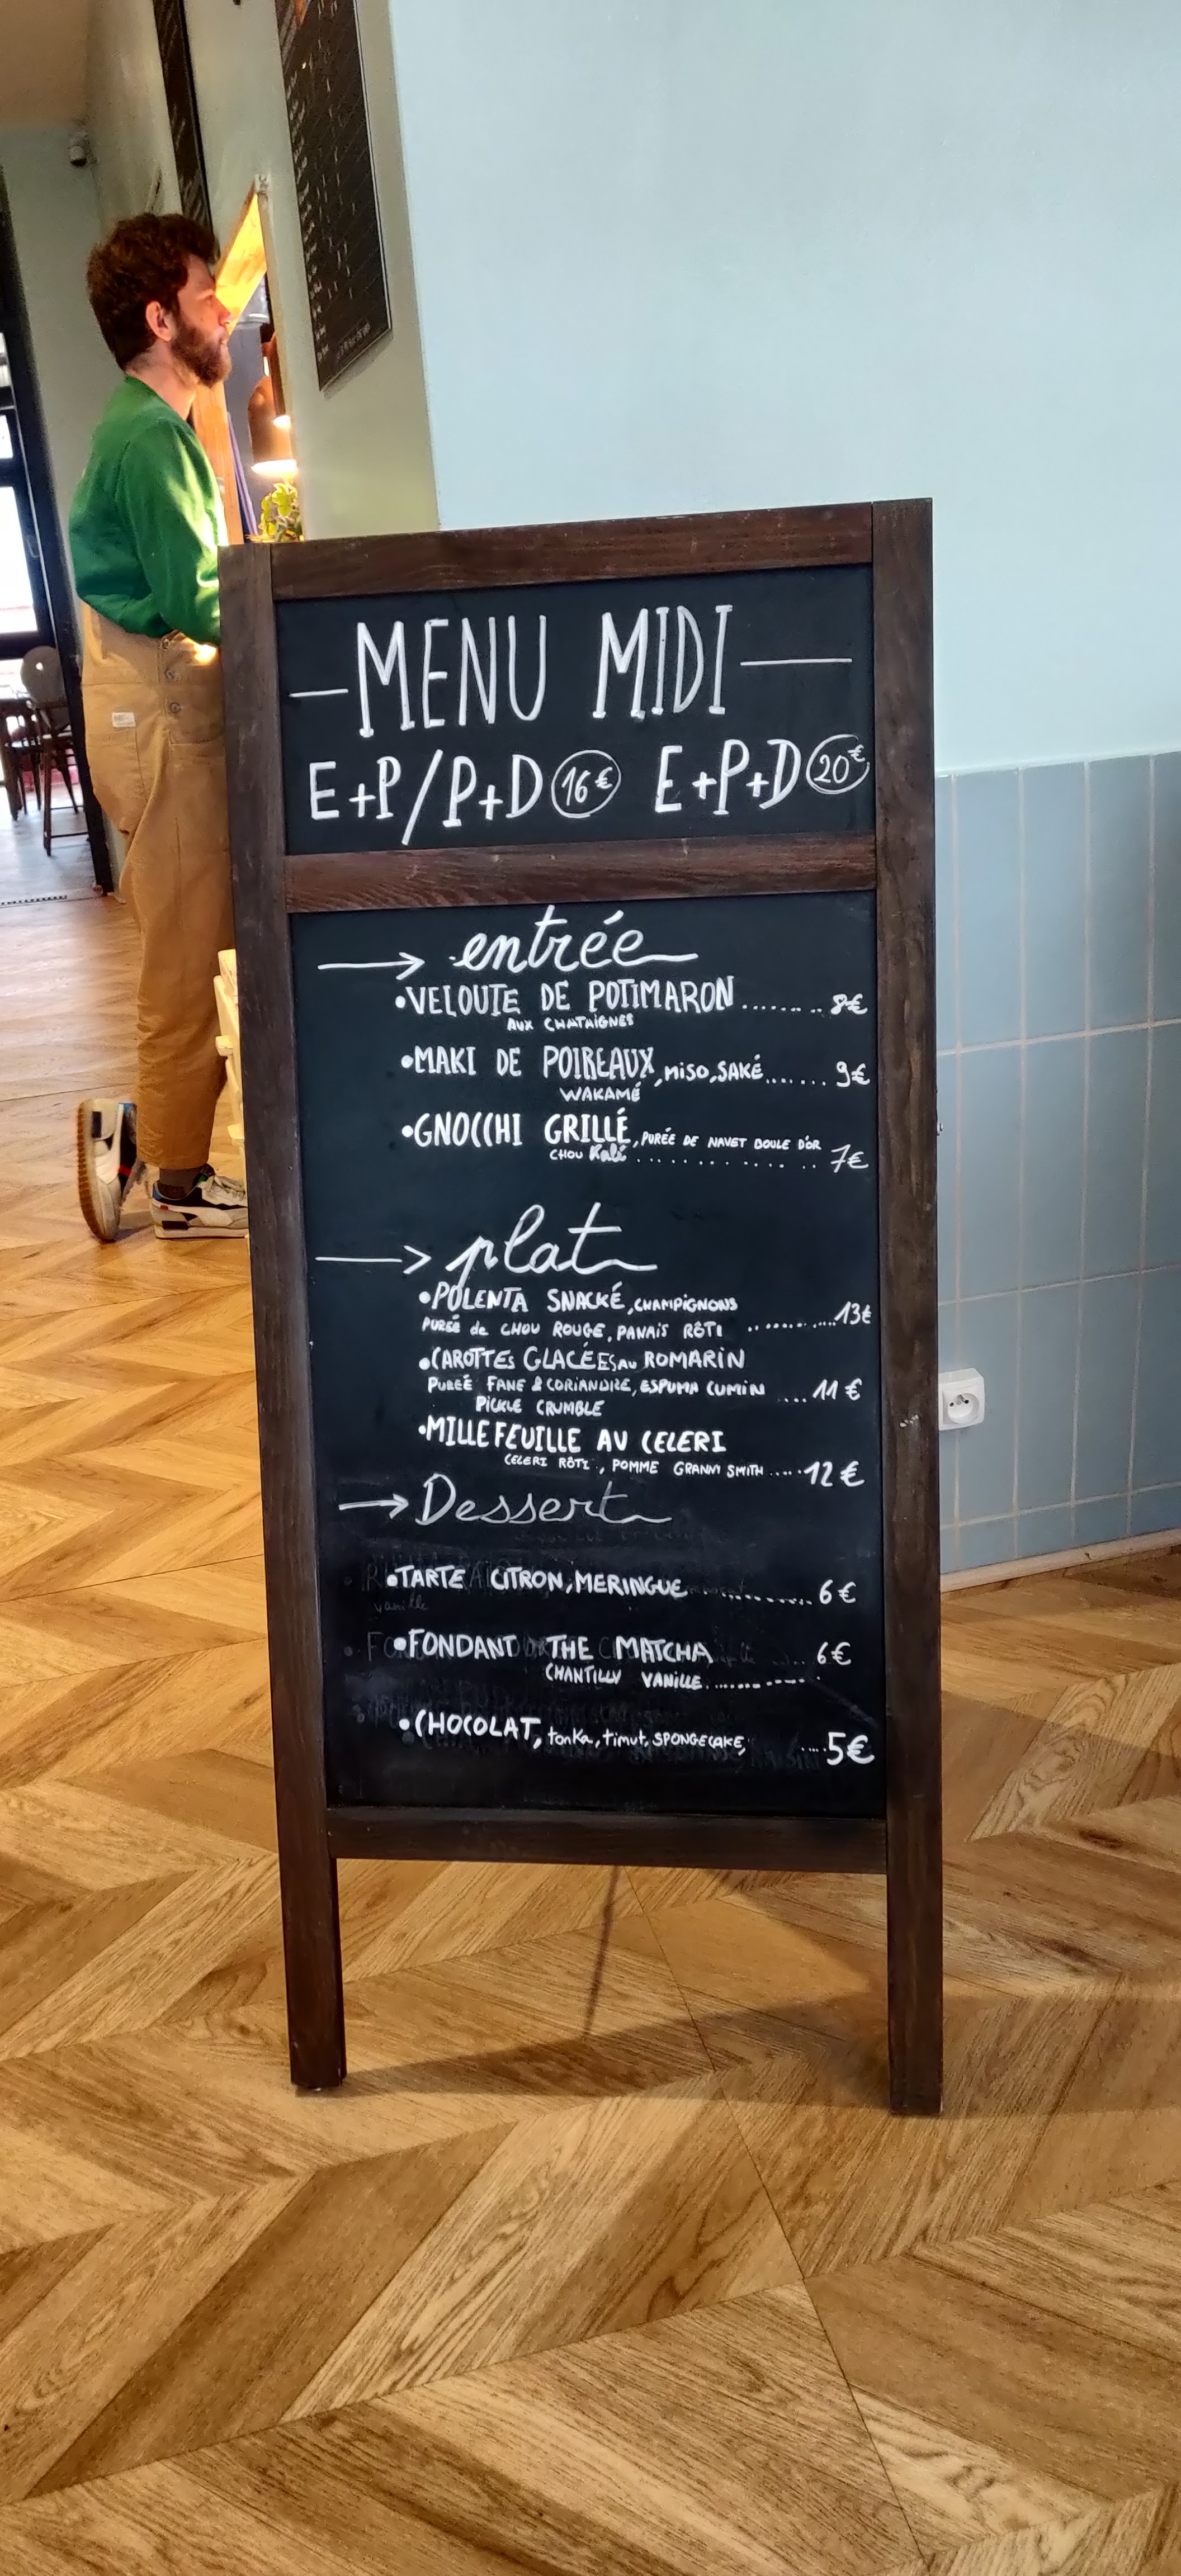 MENU MIDI
E+P/P+D 16€ E+P+D 20€
entrée
•VELOUTE DE POTIMARON........8€
AUX CHATAIGNES
•MAKI DE POIREAUX, MISO, SAKÉ.......9€
WAKAMÉ
•GNOCCHI GRILLÉ, PURÉE DE NAVET BOULE D'OR
CHOU Kalé .............. 7€
plat
•POLENTA SNACKÉ, CHAMPIGNONS
PURÉE de CHOU ROUGE, PANAIS RÔTI ............13€
•CAROTTES GLACÉES au ROMARIN
PUREÉ FANE & CORIANDRE, ESPUMA CUMIN ....11€
PICKLE CRUMBLE
•MILLEFEUILLE AU CELERI
CELERI RÔTI, POMME GRANNY SMITH.....12€
Dessert
•TARTE CITRON, MERINGUE ............6€
vanille
•FONDANT THE MATCHA .. 6€
CHANTILLY VANILLE...........
•CHOCOLAT, tonka, timut, SPONGECAKE, ....5€